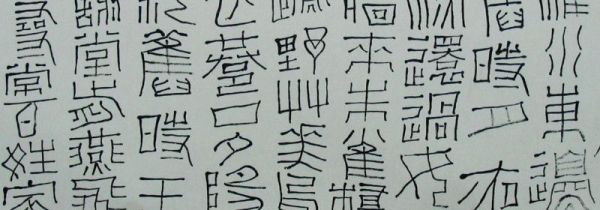 淮水東邊
舊時月夜
深還過女
牆來朱雀橋
邊野艸花烏
衣巷口夕陽
斜舊時王
謝堂前燕飛
尋常百姓家